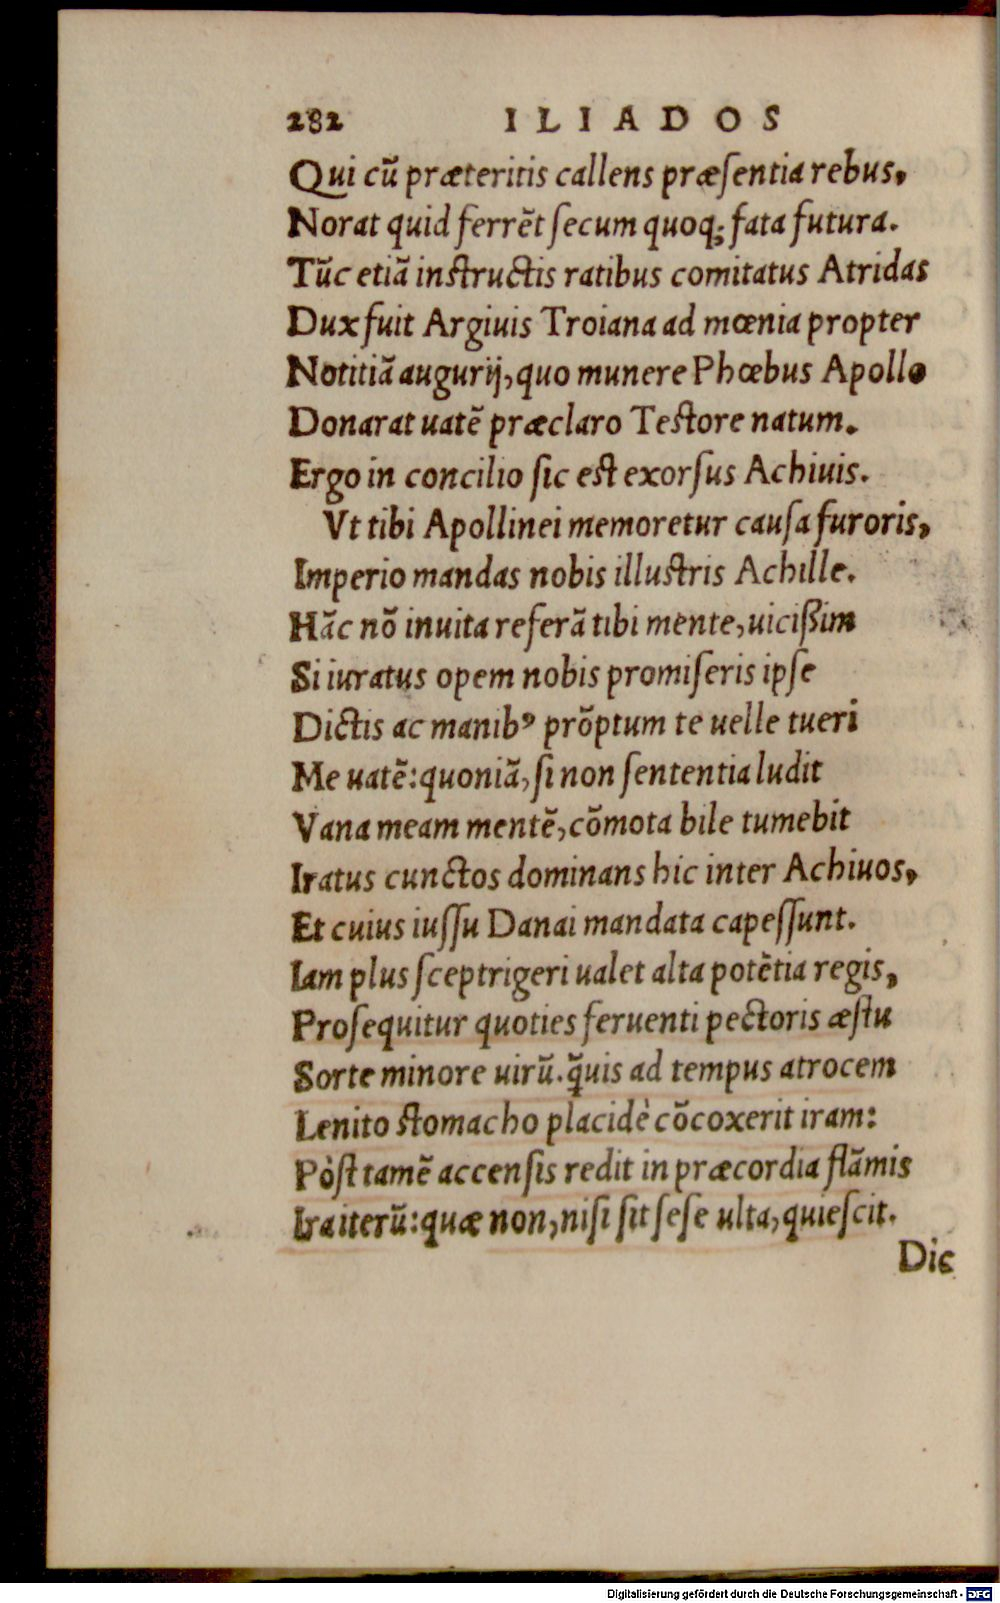 282 ILIADOS
Qui cū præteritis callens præſentia rebus,
Norat quid ferrēt ſecum quoq; fata futura.
Tūc etiā inſtructis ratibus comitatus Atridas
Dux fuit Argiuis Troiana ad mœnia propter
Notitiā augurij, quo munere Phœbus Apollo
Donarat uatē præclaro Teſtore natum.
Ergo in concilio ſic eſt exorſus Achiuis.
Vt tibi Apollinei memoretur cauſa furoris,
Imperio mandas nobis illuſtris Achille.
Hāc nō inuita referā tibi mente, uicißim
Si iuratus opem nobis promiſeris ipſe
Dictis ac manibꝰ prōptum te uelle tueri
Me uatē: quoniā, ſi non ſententia ludit
Vana meam mentē, cōmota bile tumebit
Iratus cunctos dominans hic inter Achiuos,
Et cuius iuſſu Danai mandata capeſſunt.
Iam plus ſceptrigeri ualet alta potētia regis,
Proſequitur quoties feruenti pectoris æſtu
Sorte minore uirū. q̄uis ad tempus atrocem
Lenito ſtomacho placidè cōcoxerit iram:
Pòſt tamē accenſis redit in præcordia flāmis
Ira iterū: quæ non, niſi ſit ſeſe ulta, quieſcit.
Dic
Digitalisierung gefördert durch die Deutsche Forschungsgemeinschaft - DFG